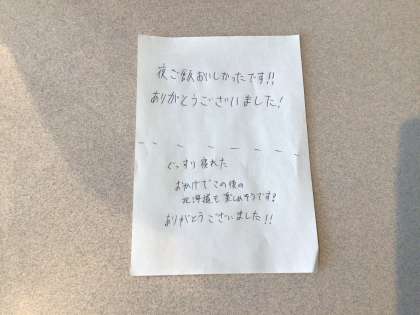 夜ご飯おいしかったです!!
ありがとうございました!
ぐっすり寝れた
おかげでこの後の
北海道も楽しめそうです!
ありがとうございました!!